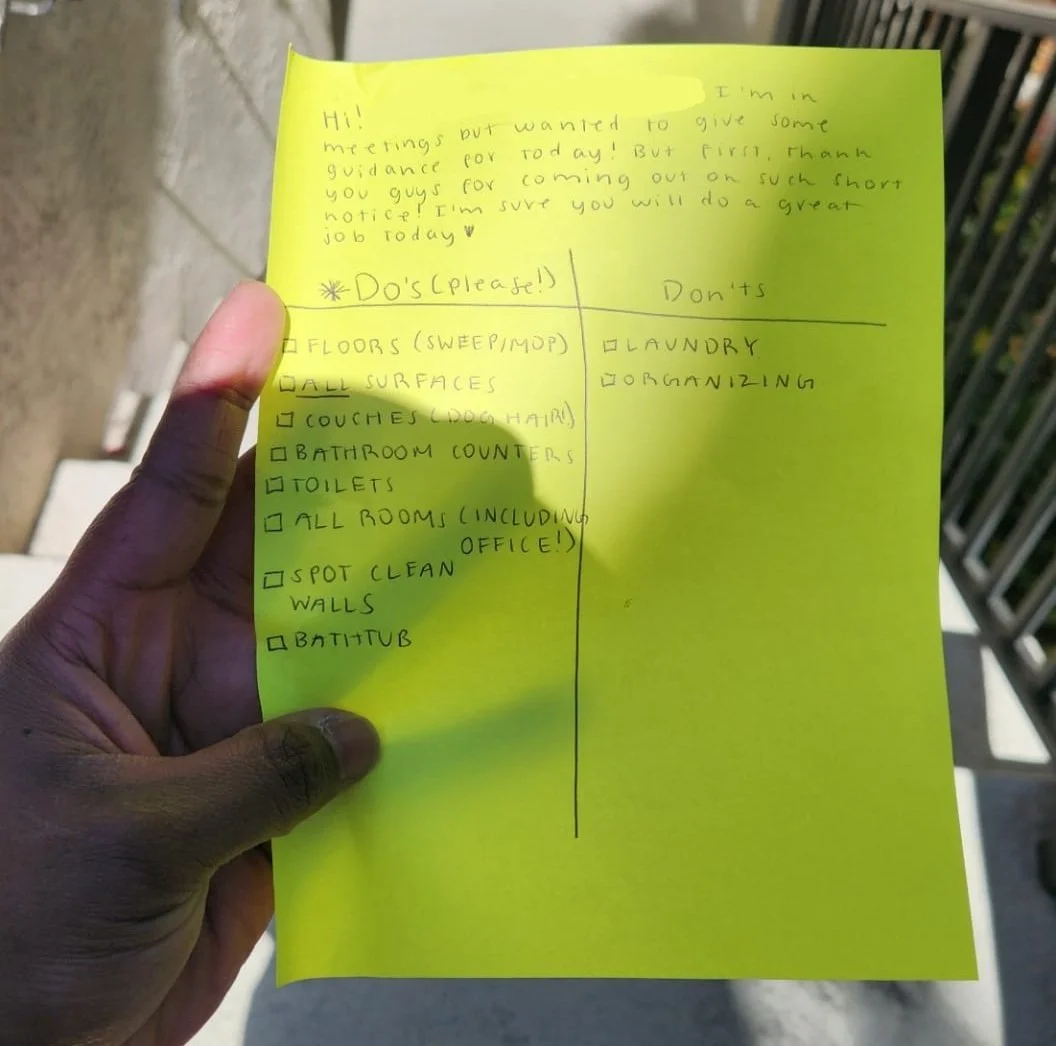 Hi! I'm in
meetings but wanted to give some
guidance for today! But first, thank
you guys for coming out on such short
notice! I'm sure you will do a great
job today ♥
*Do's (please!)
□ FLOORS (SWEEP/MOP)
□ ALL SURFACES
□ COUCHES (DOG HAIR!)
□ BATHROOM COUNTERS
□ TOILETS
□ ALL ROOMS (INCLUDING
OFFICE!)
□ SPOT CLEAN
WALLS
□ BATHTUB
Don'ts
□ LAUNDRY
□ ORGANIZING